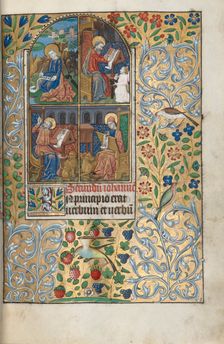 Secundum iohannē
In principio erat
uerbum et uerbū